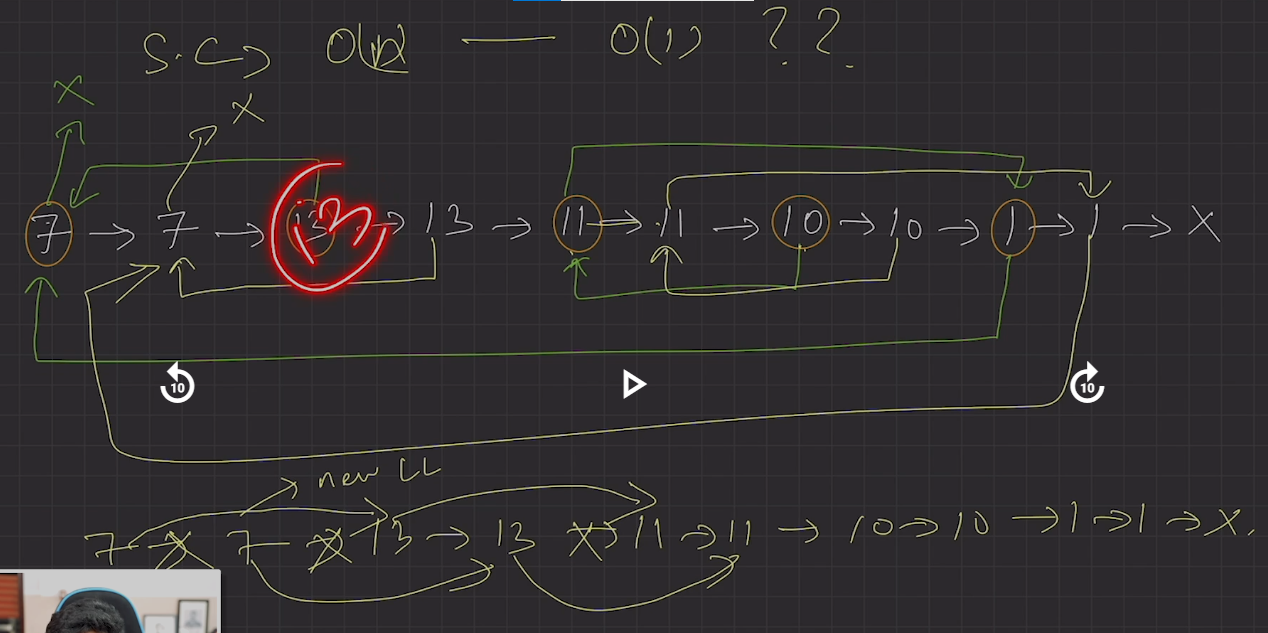 S.C → O(n) — O(1) ??
X
X
7 → 7 → 13 → 13 → 11 → 11 → 10 → 10 → 1 → 1 → X
13
10
10
new LL
7 7 13 → 13 11 → 11 → 10 → 10 → 1 → 1 → X.